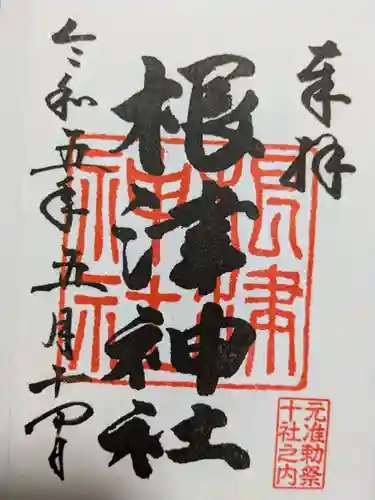 奉拝
根津神社
令和五年五月十四日
根津神社
元准勅祭
十社之内